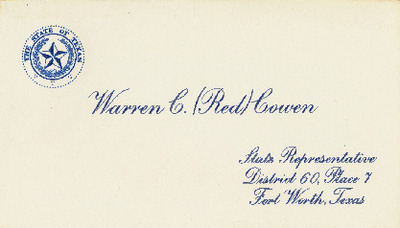 THE STATE OF TEXAS
Warren C. (Red) Cowen
State Representative
District 60, Place 7
Fort Worth, Texas